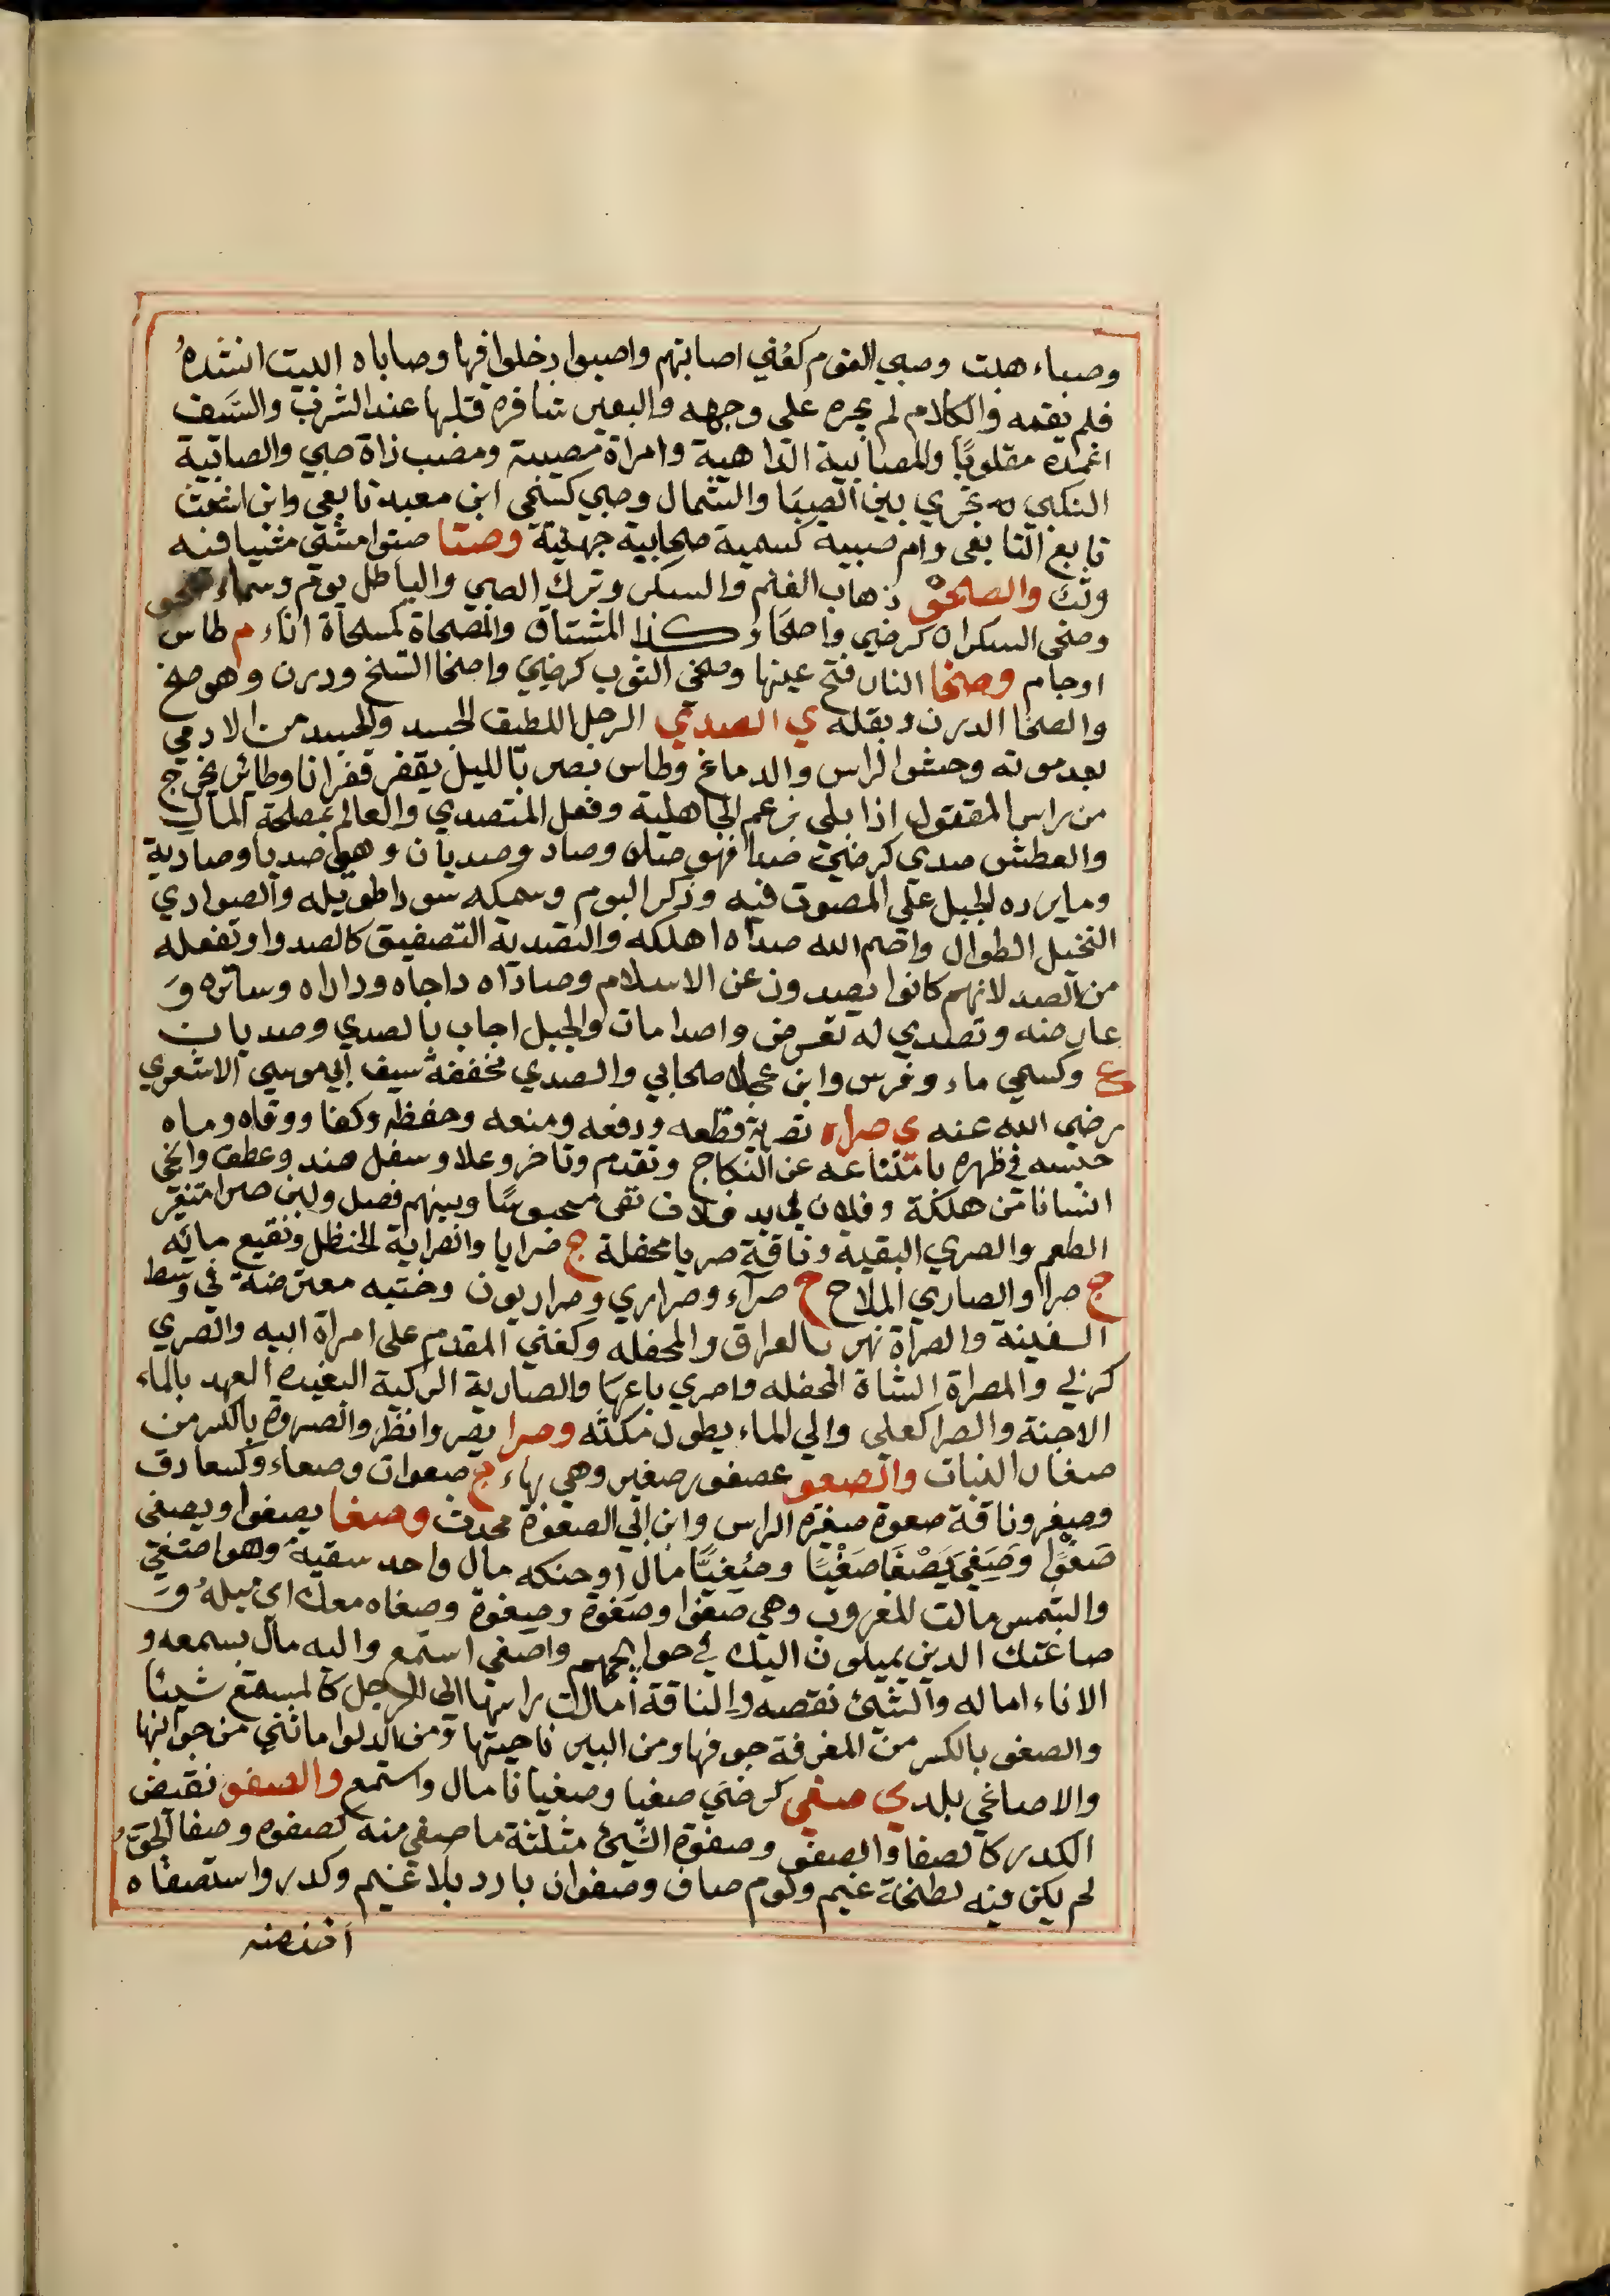 وصباء هبت وصبي القوم كعُني اصابتهم واصبوا دخلوا فيها وصاباه البيت انشدهُ
فلم يقمه والكلام لم يجره على وجهه والبعير شافره قلبها عند الشرب والسَيف
اغمده مقلوبًا والمصابية الداهية وامراة مصبية ومصب ذاة صبي والصابية
النكبي ه تجري بين الصبَا والشمال وصبي كسَمي ابن معبد تابعي وابن اشعث
تابع التابعي وام صبية كسمية صحابية جهنية وصتا صتوا مشي مشيا فيه
وثب والصحو ذهاب الغيم والسكر وترك الصبي والباطل يوم وسماء صحو
وصحى السكران كرضي واصحَا وكذا المشتاق والمصحاة كمسحاة اناء م طاس
اوجام وصخا النار فتح عينها وصخي الثوب كرضي واصخا اتسخ ودرن وهو صخ
والصخا الدرن وبقله ي الصدي الرجل اللطيف الجسد والجسد من الادمي
بعد موته وحشوا الراس والدماغ وطاس يصر بالليل يقفر قفزانا وطائر يخرج
من راس المقتول اذا بلى بزعم الجاهلية وفعل المتصدي والعالم بمصلحة المال
والعطش صدي كرضي صدا فهو صداه وصاد وصديان وهي صديا وصادية
وما يرده الجبل على المصوت فيه وذكر البوم وسمكه سودا طويله والصوادي
النخيل الطوال واصم الله صداه اهلكه والتصدية التصفيق كالصدوا وتفعله
من الصد لانهم كانوا يصدون عن الاسلام وصاداه داجاه وداراه وساتره وَ
عارضه وتصدي له تعرض واصدا مات والجبل اجاب بالصدي وصديان
ع وكسمي ماء وفرس وابن عجلان صحابي والصدي مخففة سيف ابي موسى الاشعري
رضي الله عنه ي صراه تصرية قطعه ودفعه ومنعه وحفظه وكفا ووقاه وماه
حبسه في ظهره بامتناعه عن النكاح وتقدم وتاخر وعلا وسفل ضد وعطف وانجى
انسانا من هلكة وفلان في يد فلان بقى محبوسًا وبينهم فصل ولبن صرا متغير
الطعم والصري البقية وناقة صريا محفلة ج صرايا والصراية الحنظل ونقيع مائه
ج صرا والصاري الملاح ج صرآء وصراري وصراريون وخشبه معترضة في وسط
السفينة والصراة نهر بالعراق والمحفله وكغني المقدم على امراة ابيه والصري
كربي والمصراة الشاة المحفله واصري باعهَا والصارية الركية البعيده العهد بالماء
الاجنة والصرا كعلي والي الماء يطول مكثه وصرا يصروا نظر والصروة بالكسر من
صغار النبات والصعو عصفور صغير وهي بهاء ج صعوات وصعاء وكسعا دق
وصغر وناقة صعوة صغيرة الراس وابن ابي الصعوة محدث وصغا يصغوا ويصغى
صَغوًا وصَغِيَ يَصْغَا صَغْيًا وصُغيًّا مال او حنكه مال واحد سقيه وهو اصتغى
والشمس مالت للغروب وهي صغوا وصَغوة وصغوة وصغاه معك اي ميلهُ وَ
صاغتك الدين يميلون اليك في حوائجهم واصغى استمع واليه مال بسمعه و
الاناء اماله والشئ نقصه والناقة امالت راسها الى الرجل كالمستمع شيئا
والصغو بالكسر من المغرفة جوفها ومن البير ناحيتها ومن الدلوا ما تثني من جوانبها
والاصاغي بلد ي صغي كرضي صغيا وصغيانا مال واستمع والصفو نقيض
الكدر كالصفا والصفو وصفوة الشئ مثلثة ما صفي منه كصفوه وصفا الجوّ
لم يكن فيه لطخة غيم وكوم صاف وصفوان بارد بلا غيم وكدر واستصفاه
اخذ منه